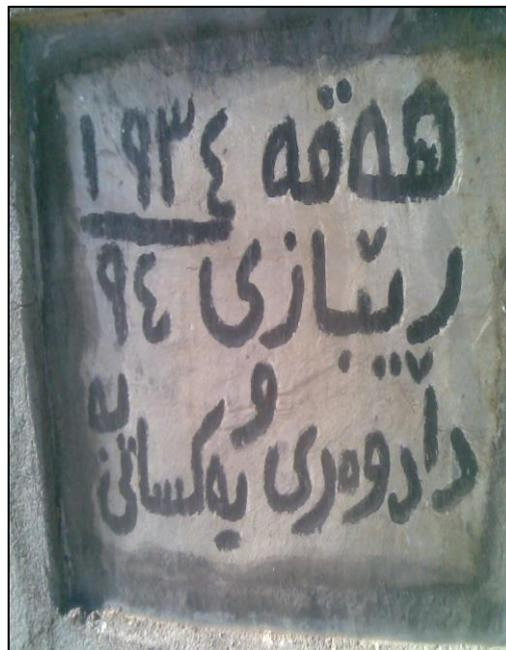 هەقە ١٩٣٤
ڕێبازی ٩٤
دادوەری و یەکسانی یە